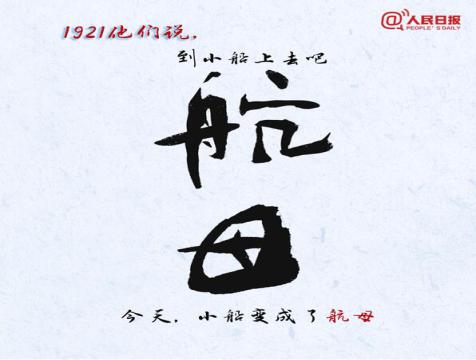 1921他们说，
@人民日报
PEOPLE'S DAILY
到小船上去吧
航
母
今天，小船变成了航母